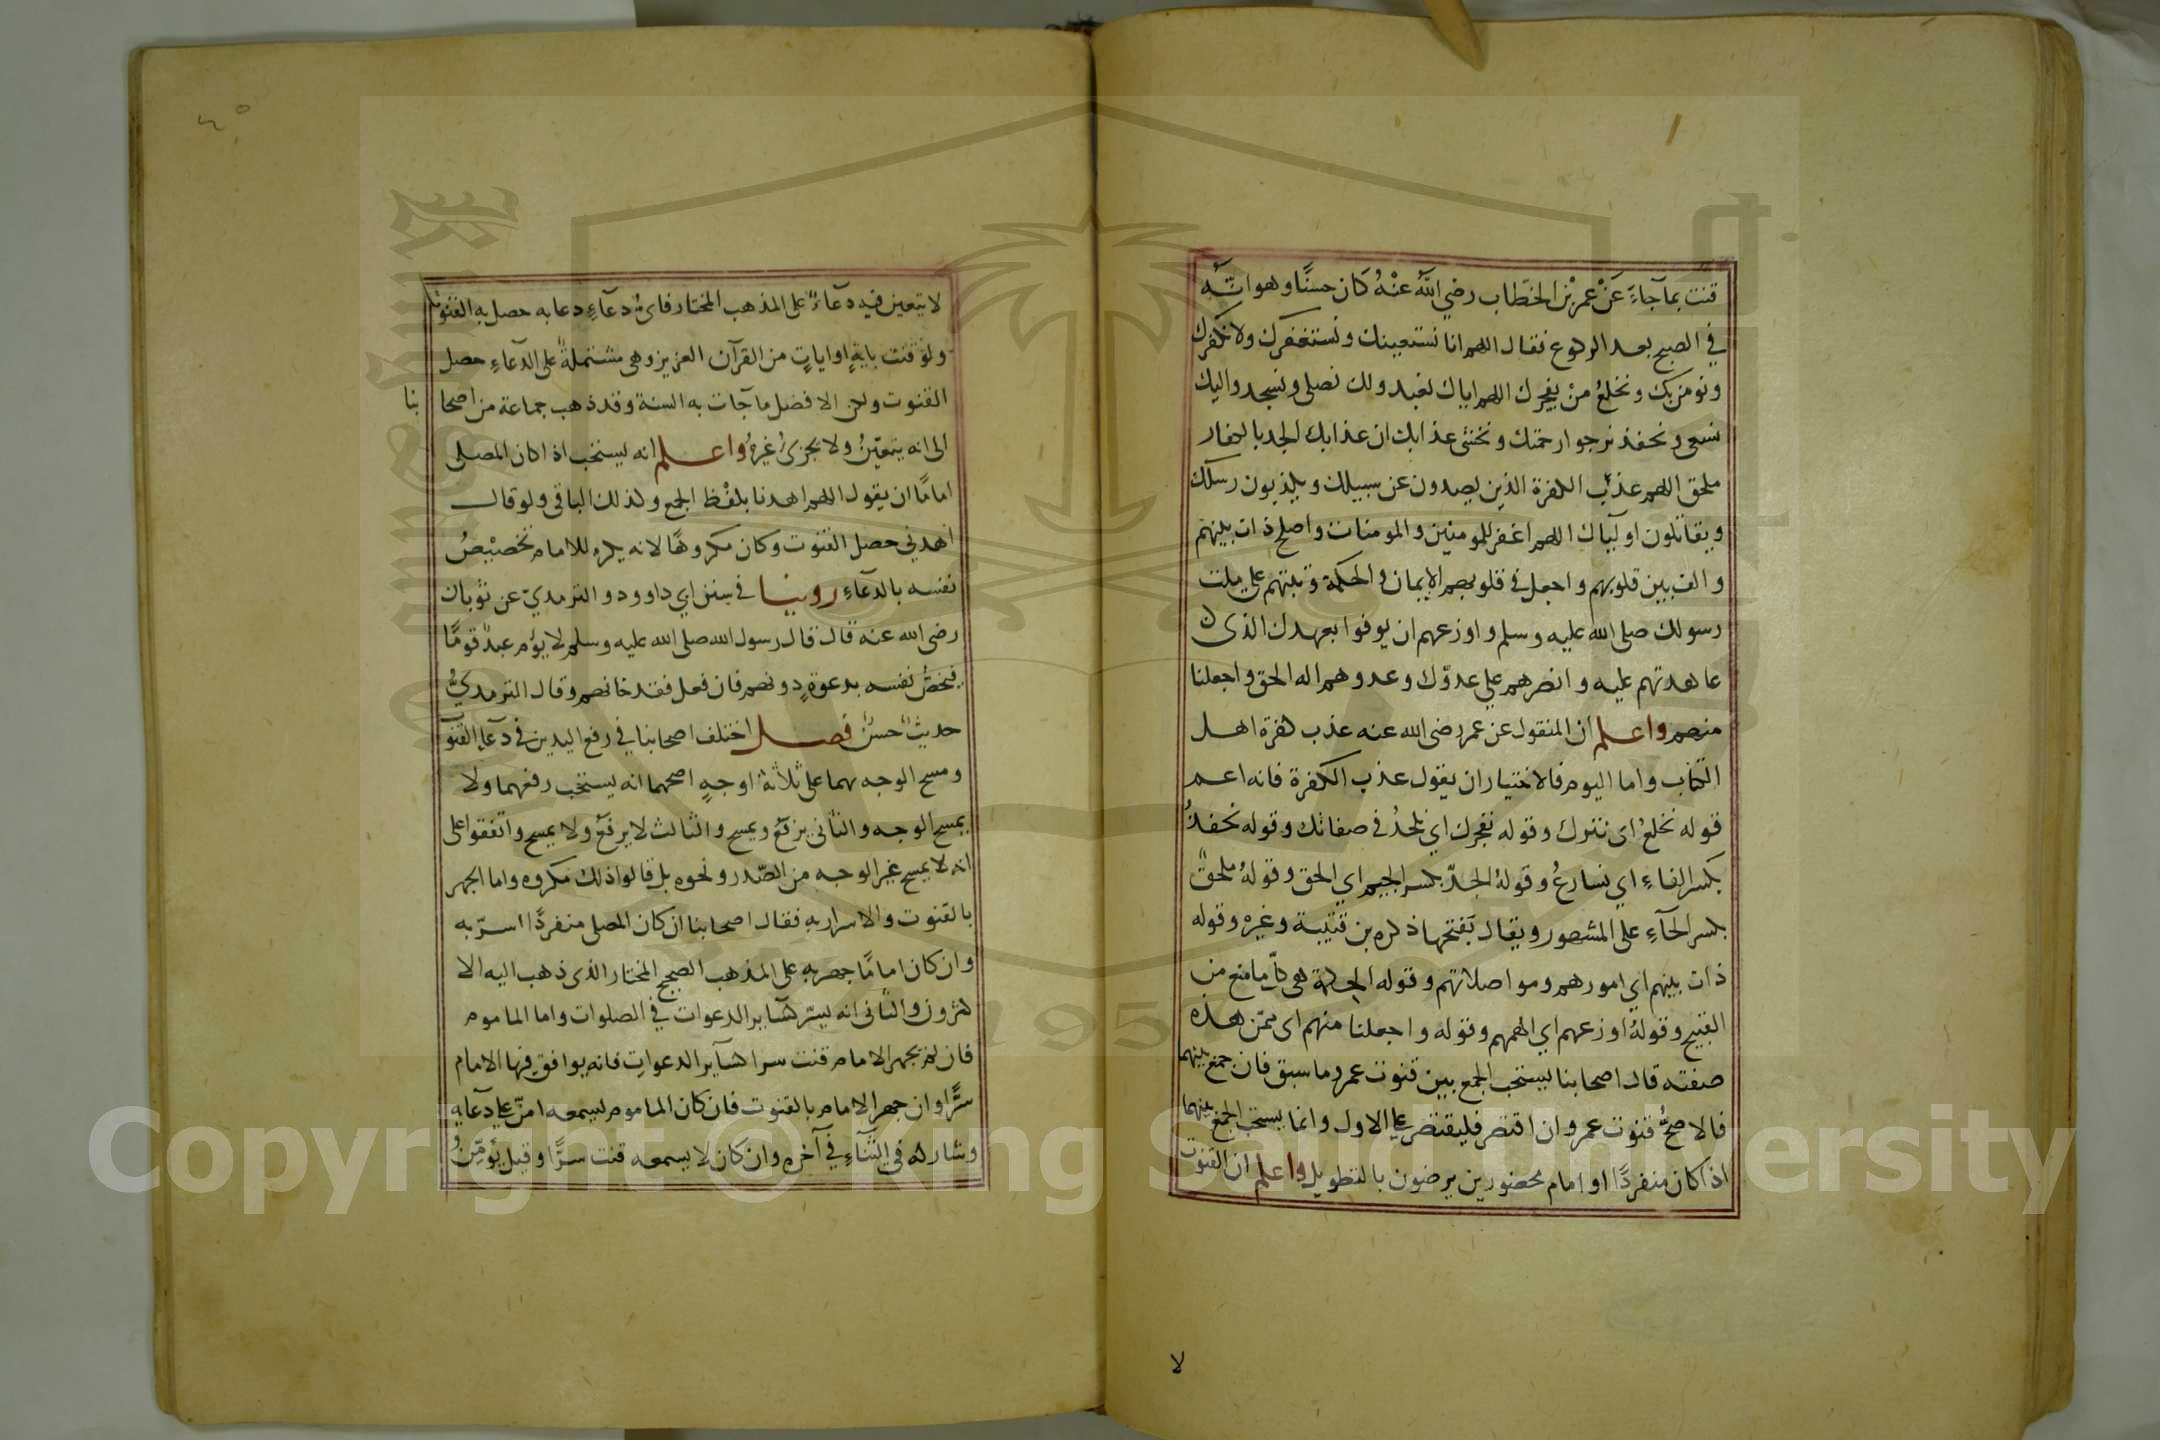 قنت بما جآءَ عَنْ عمر بْن الخطاب رضي اللّٰه عنْهُ كَان حسنًا وهو انّهُ
في الصبح بعد الركوع فقال اللهم انا نستعينك ونستغفرك ولا نكفرك
ونومن بك ونخلعُ منْ يفجرك اللهم اياك نعبد ولك نصلي ونسجد واليك
نسعى ونحفد نرجوا رحمتك ونخشى عذابك ان عذابك الجد بالكفار
ملحق اللهم عذّب الكفرة الذين يصدون عن سبيلك ويكذبون رسلك
ويقاتلون اوليآك اللهم اغفر للمومنين والمومنات واصلح ذات بينهم
والف بين قلوبهم واجعل في قلوبهم الإيمان والحكمة وثبتهم على ملت
رسولك صلى الله عليه وسلم واوزعهم ان يوفوا بعهدك الذى
عاهدتهم عليه وانصرهم على عدوّك وعدوهم اله الحق واجعلنا
منهم واعلم ان المنقول عن عمر رضى الله عنه عذب كفرة اهل
الكتاب واما اليوم فالاختيار ان يقول عذب الكفرة فانه اعم
قوله نخلعُ اى نترك وقوله نفجرك اي نلحدُ في صفاتك وقوله نحفدُ
بكسر الفاءِ اي نسارعُ وقولهُ الجدّ بكسر الجيم اي الحق وقولهُ ملحقٌ
بكسر الحآءِ على المشهور ويقال بَفتحها ذكره بن قتيبة وغيره وقوله
ذات بينهم اي امورهم ومواصلاتهم وقوله الحكمة هى كلّ ما منع من
القبيح وقولهُ اوزعهم اي الهمهم وقوله واجعلنا منهم اى ممّن هذه
صفته قال اصحابنا يستحب الجمع بين قنوت عمر وما سبق فان جمع بينهما
فالاصحُّ قنوت عمر وان اقتصر فليقتصر على الاول وانما يستحب الجمع بينهما
اذا كان منفردًا او امام محصورين يرضون بالتطويل واعلم ان القنوت
لا
لا يتعين فيه دعآءٌ على المذهب المختار فاىُّ دعآءٍ دعا به حصل به القنوت
ولو قنت بايةٍ او اياتٍ من القرآن العزيز وهى مشتملةٌ على الدعآءِ حصل
القنوت ولكن الافضل ما جآت به السنة وقد ذهب جماعة من اصحا
بنا
الى انه يتعيّنُ ولا يجزىُ غيرهُ واعلم انه يستحب اذا كان المصلى
امامًا ان يقول اللهم اهدنا بلفْظ الجمع وكذلك الباقى ولو قال
اهدني حصل القنوت وكان مكروهًا لانه يكره للامام تخصيْصُ
نفسه بالدعآءِ روينا في سنن ابي داوود والترمدىّ عن ثوبان
رضى الله عنه قال قال رسول الله صلى الله عليه وسلم لا يؤم عبدٌ قومًا
فيخصُّ نفسه بدعوةٍ دونهم فان فعل فقد خانهم وقال الترمدىُّ
حديثٌ حسنٌ فصل اختلف اصحابنا في رفع اليدين في دعآءِ القنوت
ومسح الوجه بهما على ثلاثة اوجهٍ اصحهما انه يستحب رفعهما ولا
يمسح الوجه والثانى يرفعُ ويمسح والثالث لا يرفعُ ولا يمسح واتفقوا على
انه لا يمسح غير الوجه من الصّدر ونحوه بل قالوا ذلك مكروه واما الجهر
بالقنوت والاسرار به فقال اصحابنا ان كان المصلى منفردًا اسرّ به
وان كان امامًا جهر به على المذهب الصحيح المختار الذى ذهب اليه الا
كثرون والثانى انه يسرّ كسآير الدعوات في الصلوات واما الماموم
فان لم يجهر الامام قنت سرا كسآير الدعوات فانه يوافق فيها الامام
سرًّا وان جهر الامام بالقنوت فان كان الماموم يسمعه امّن على دعآيه
وشاركه في الثنآءِ في آخره وان كان لا يسمعه قنت سرًّا وقيل يؤمّنُ
Copyright © King Saud University